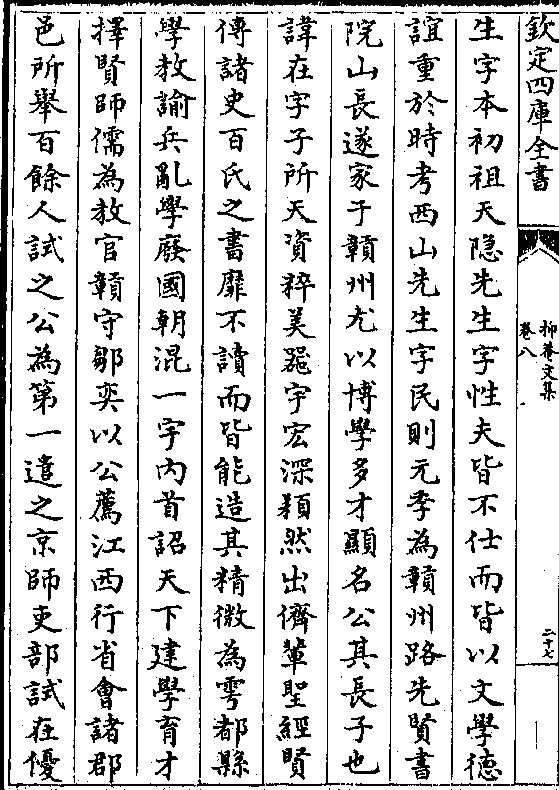 欽定四庫全書
抑菴文集
卷八
二十七
生字本初祖天隐先生字性夫皆不仕而皆以文學德
誼重於時考西山先生字民則元季為贛州路先賢書
院山長遂家于贛州尤以博學多才顯名公其長子也
諱在字子所天資粹美器宇宏深頴然出儕軰聖經賢
傳諸史百氏之書靡不讀而皆能造其精微為雩都縣
學教諭兵亂學廢國朝混一宇内首詔天下建學育才
擇賢師儒為教官贛守鄒奕以公薦江西行省會諸郡
邑所舉百餘人試之公為第一遣之京師吏部試在優